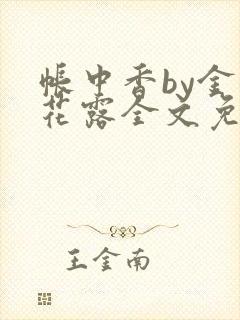 帐中香by金
花露全文免
王金南